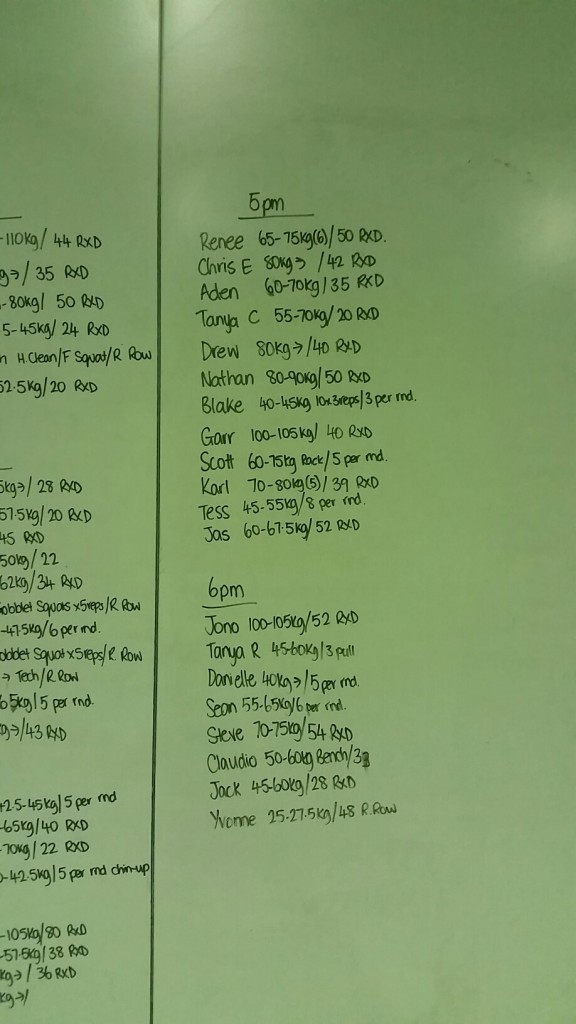 -110kg/ 44 RXD
g→/ 35 RXD
-80kg/ 50 RXD
5-45kg/ 24 RXD
n H.Clean/F Squat/R. Row
52.5kg/20 RXD
5kg→/ 28 RXD
57.5kg/20 RXD
45 RXD
50kg/22
62kg/34 RXD
obblet Squats x5reps/R. Row
-47.5kg/6 per rnd.
obblet Squat x5reps/R. Row
→ Tech/R. Row
65kg/5 per rnd.
g→/43 RXD
42.5-45kg/5 per rnd
-65kg/40 RXD
-70kg/ 22 RXD
-42.5kg/5 per rnd chin-up
-105kg/80 RXD
-57.5kg/38 RXD
kg→/ 36 RXD
kg→/
5pm
Renee 65-75kg(6)/50 RXD.
Chris E 80kg→ /42 RXD
Aden 60-70kg/35 RXD
Tanya C 55-70kg/20 RXD
Drew 80kg→/40 RXD
Nathan 80-90kg/50 RXD
Blake 40-45kg 10x3reps/3 per rnd.
Garr 100-105kg/ 40 RXD
Scott 60-75kg Rack/5 per rnd.
Karl 70-80kg(5)/39 RXD
Tess 45-55kg/8 per rnd.
Jas 60-67.5kg/52 RXD
6pm
Jono 100-105kg/52 RXD
Tanya R 45-60kg/3 pull
Danielle 40kg→/5 per rnd.
Sean 55-65kg/6 per rnd.
Steve 70-75kg/54 RXD
Claudio 50-60kg Bench/3
Jack 45-60kg/28 RXD
Yvonne 25-27.5kg/48 R. Row